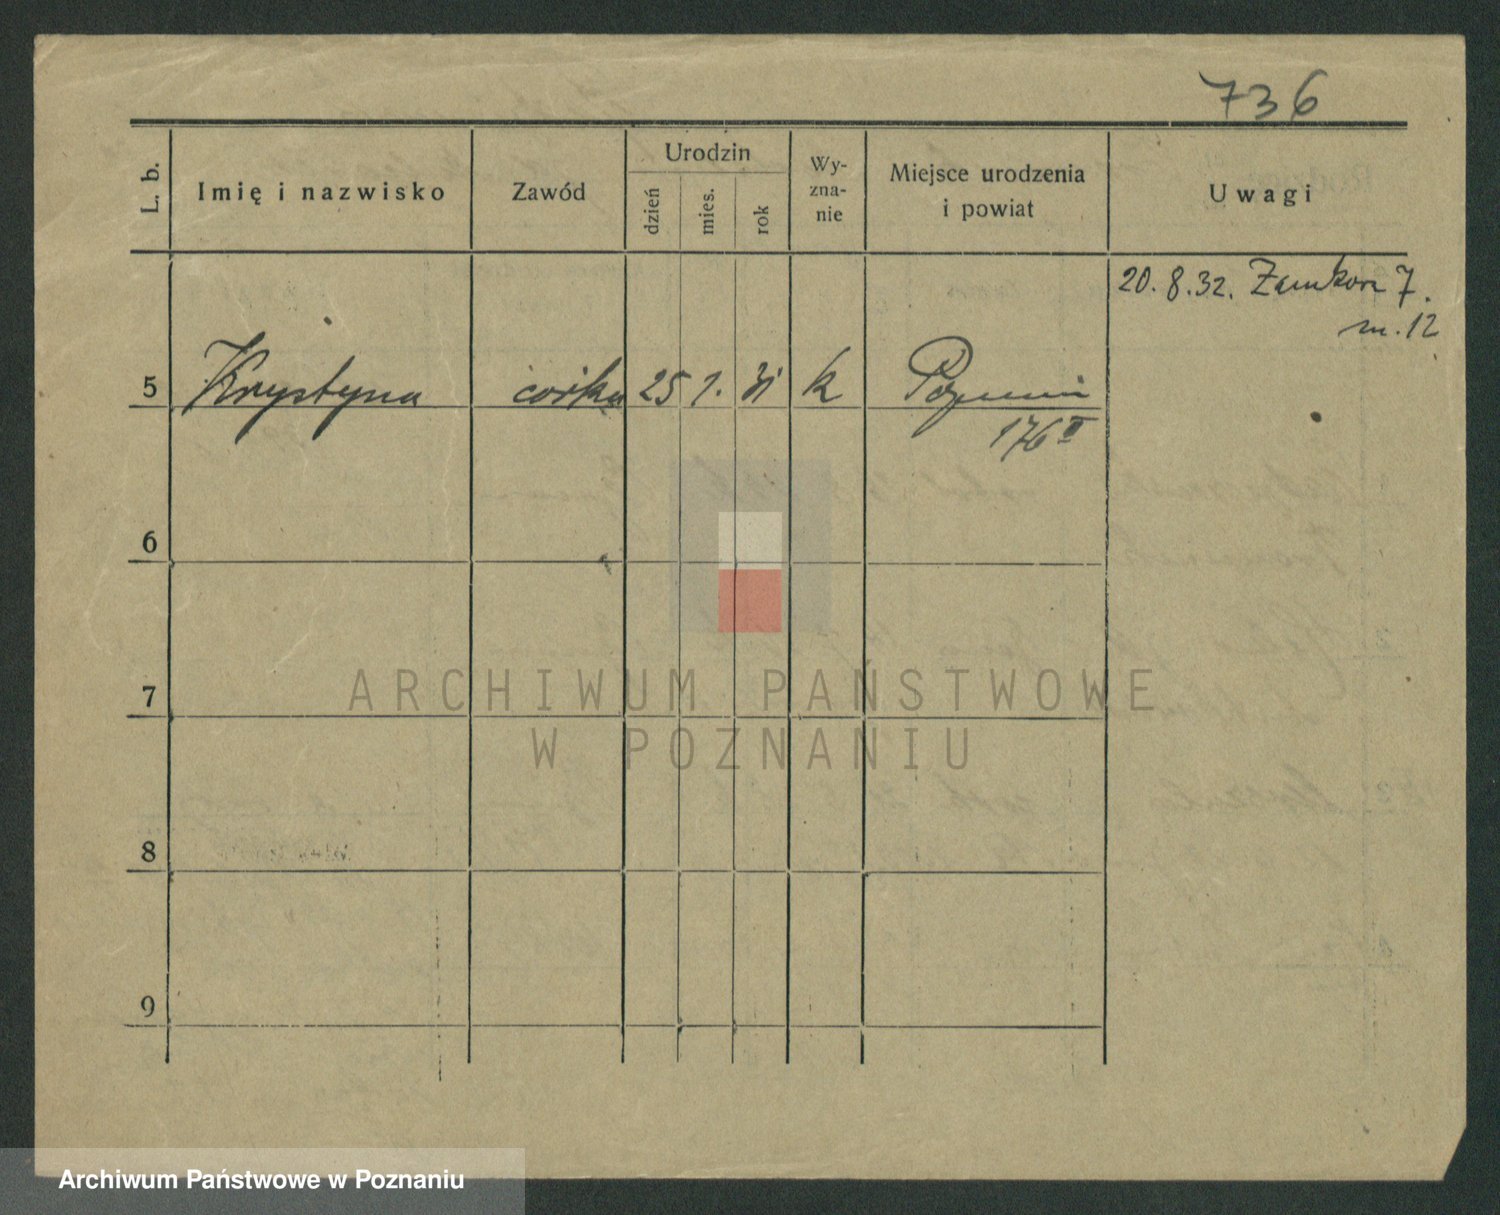 736
L. b.
Imię i nazwisko
Zawód
Urodzin
dzień
mies.
rok
Wy-
zna-
nie
Miejsce urodzenia
i powiat
Uwagi
20. 8. 32. Zamkowa 7.
m. 12
5 Krystyna córka 25 1. 31 k Poznań
176 II
6
7
8
9
ARCHIWUM PAŃSTWOWE
W POZNANIU
Archiwum Państwowe w Poznaniu